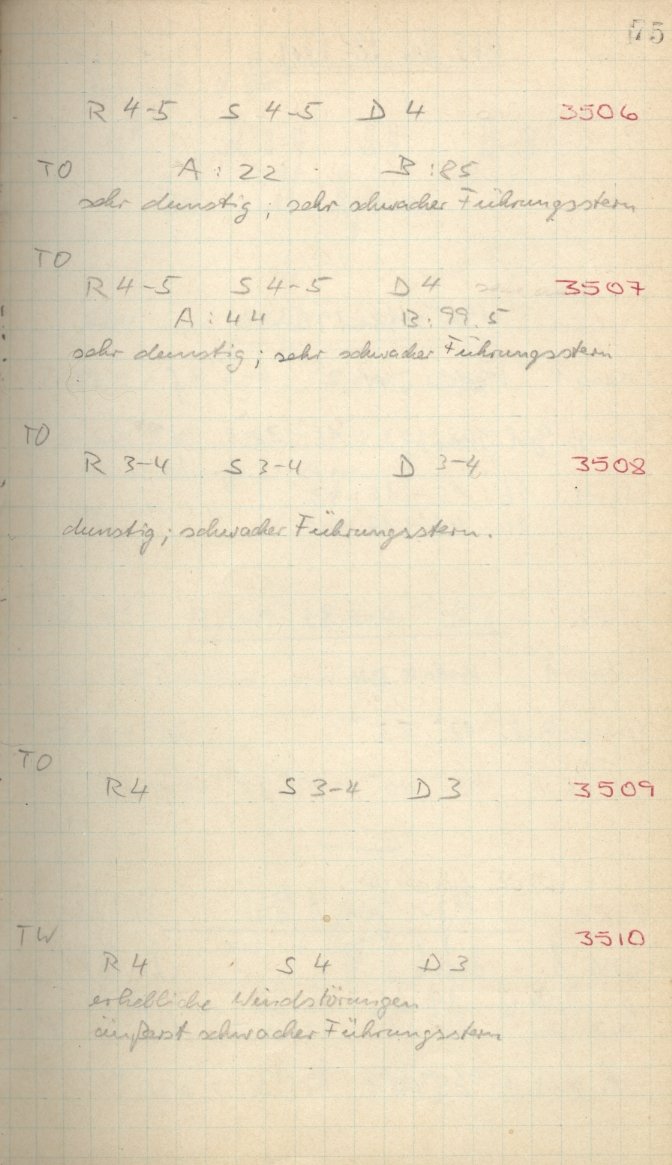 75
R 4-5 S 4-5 D 4 3506
TO A : 22 B : 85
sehr dunstig ; sehr schwacher Führungsstern
TO
R 4-5 S 4-5 D 4 3507
A : 44 B : 99.5
sehr dunstig ; sehr schwacher Führungsstern
TO
R 3-4 S 3-4 D 3-4 3508
dunstig ; schwacher Führungsstern.
TO
R 4 S 3-4 D 3 3509
TW 3510
R 4 S 4 D 3
erhebliche Windstörungen
äußerst schwacher Führungsstern